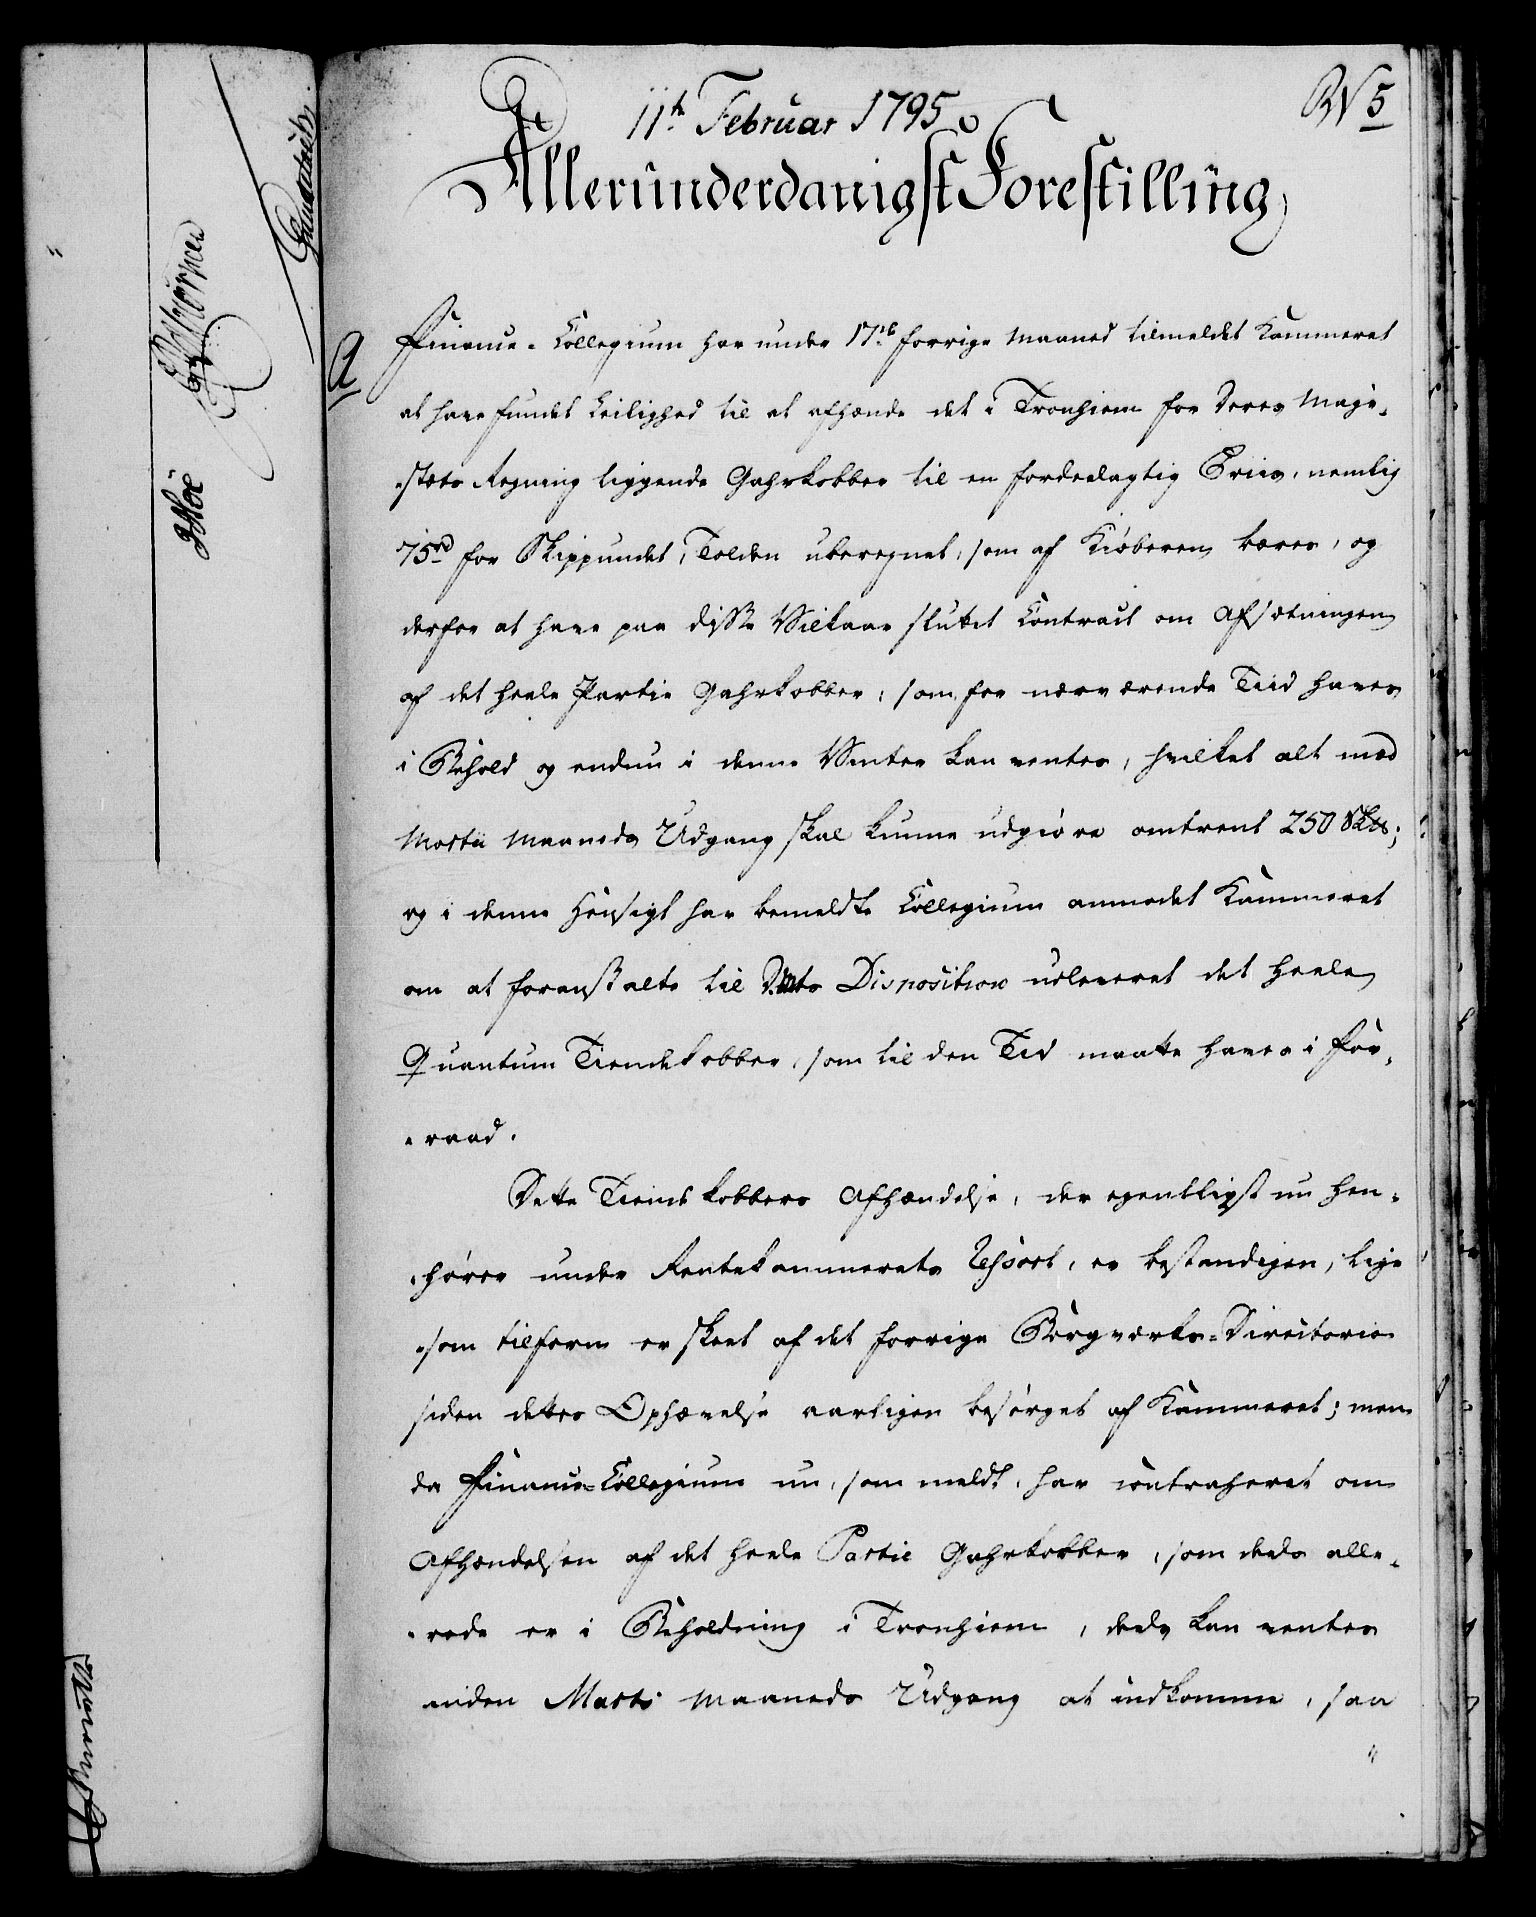 11te Februar 1795.
RN 5
Allerunderdanigst Forestilling
A
Finance-Collegium har under 17de forrige Maaned tilmeldet Kammeret
at have fundet Leilighed til at afhænde det i Tronhiem for Deres Maje-
-stæts Regning liggende Gahrkobber til en fordeelagtig Priis, nemlig
75rd for Skippundet, Tolden uberegnet, som af Kiøberen bæres, og
derfor at have paa disse Vilkaar sluttet Contract om Afsætningen
af det heele Partie Gahrkobber, som for nærværende Tiid haves
i Behold og endnu i denne Vinter kan ventes, hvilket alt med
Martii Maaneds Udgang skal kunne udgiøre omtrent 250 Sk℔;
og i denne Hensigt har bemeldte Collegium anmodet Kammeret
om at foranstalte til Dets Disposition udleveret det heele
Quantum Tiendekobber, som til den Tid maatte haves i For-
-raad.
Dette Tiendekobbers Afhændelse, der egentligst nu hen-
-hører under Rentekammerets Ressort, er bestandigen, lige
-som tilforn er skeet af det forrige Bergværks-Directorio
siden dettes Ophævelse aarligen besørget af Kammeret; men
da Finance-Collegium nu, som meldt, har contraheret om
Afhændelsen af det heele Partie Gahrkobber, som deels alle-
-rede er i Beholdning i Tronhiem, deels kan ventes
inden Martii Maaneds Udgang at indkomme, saa